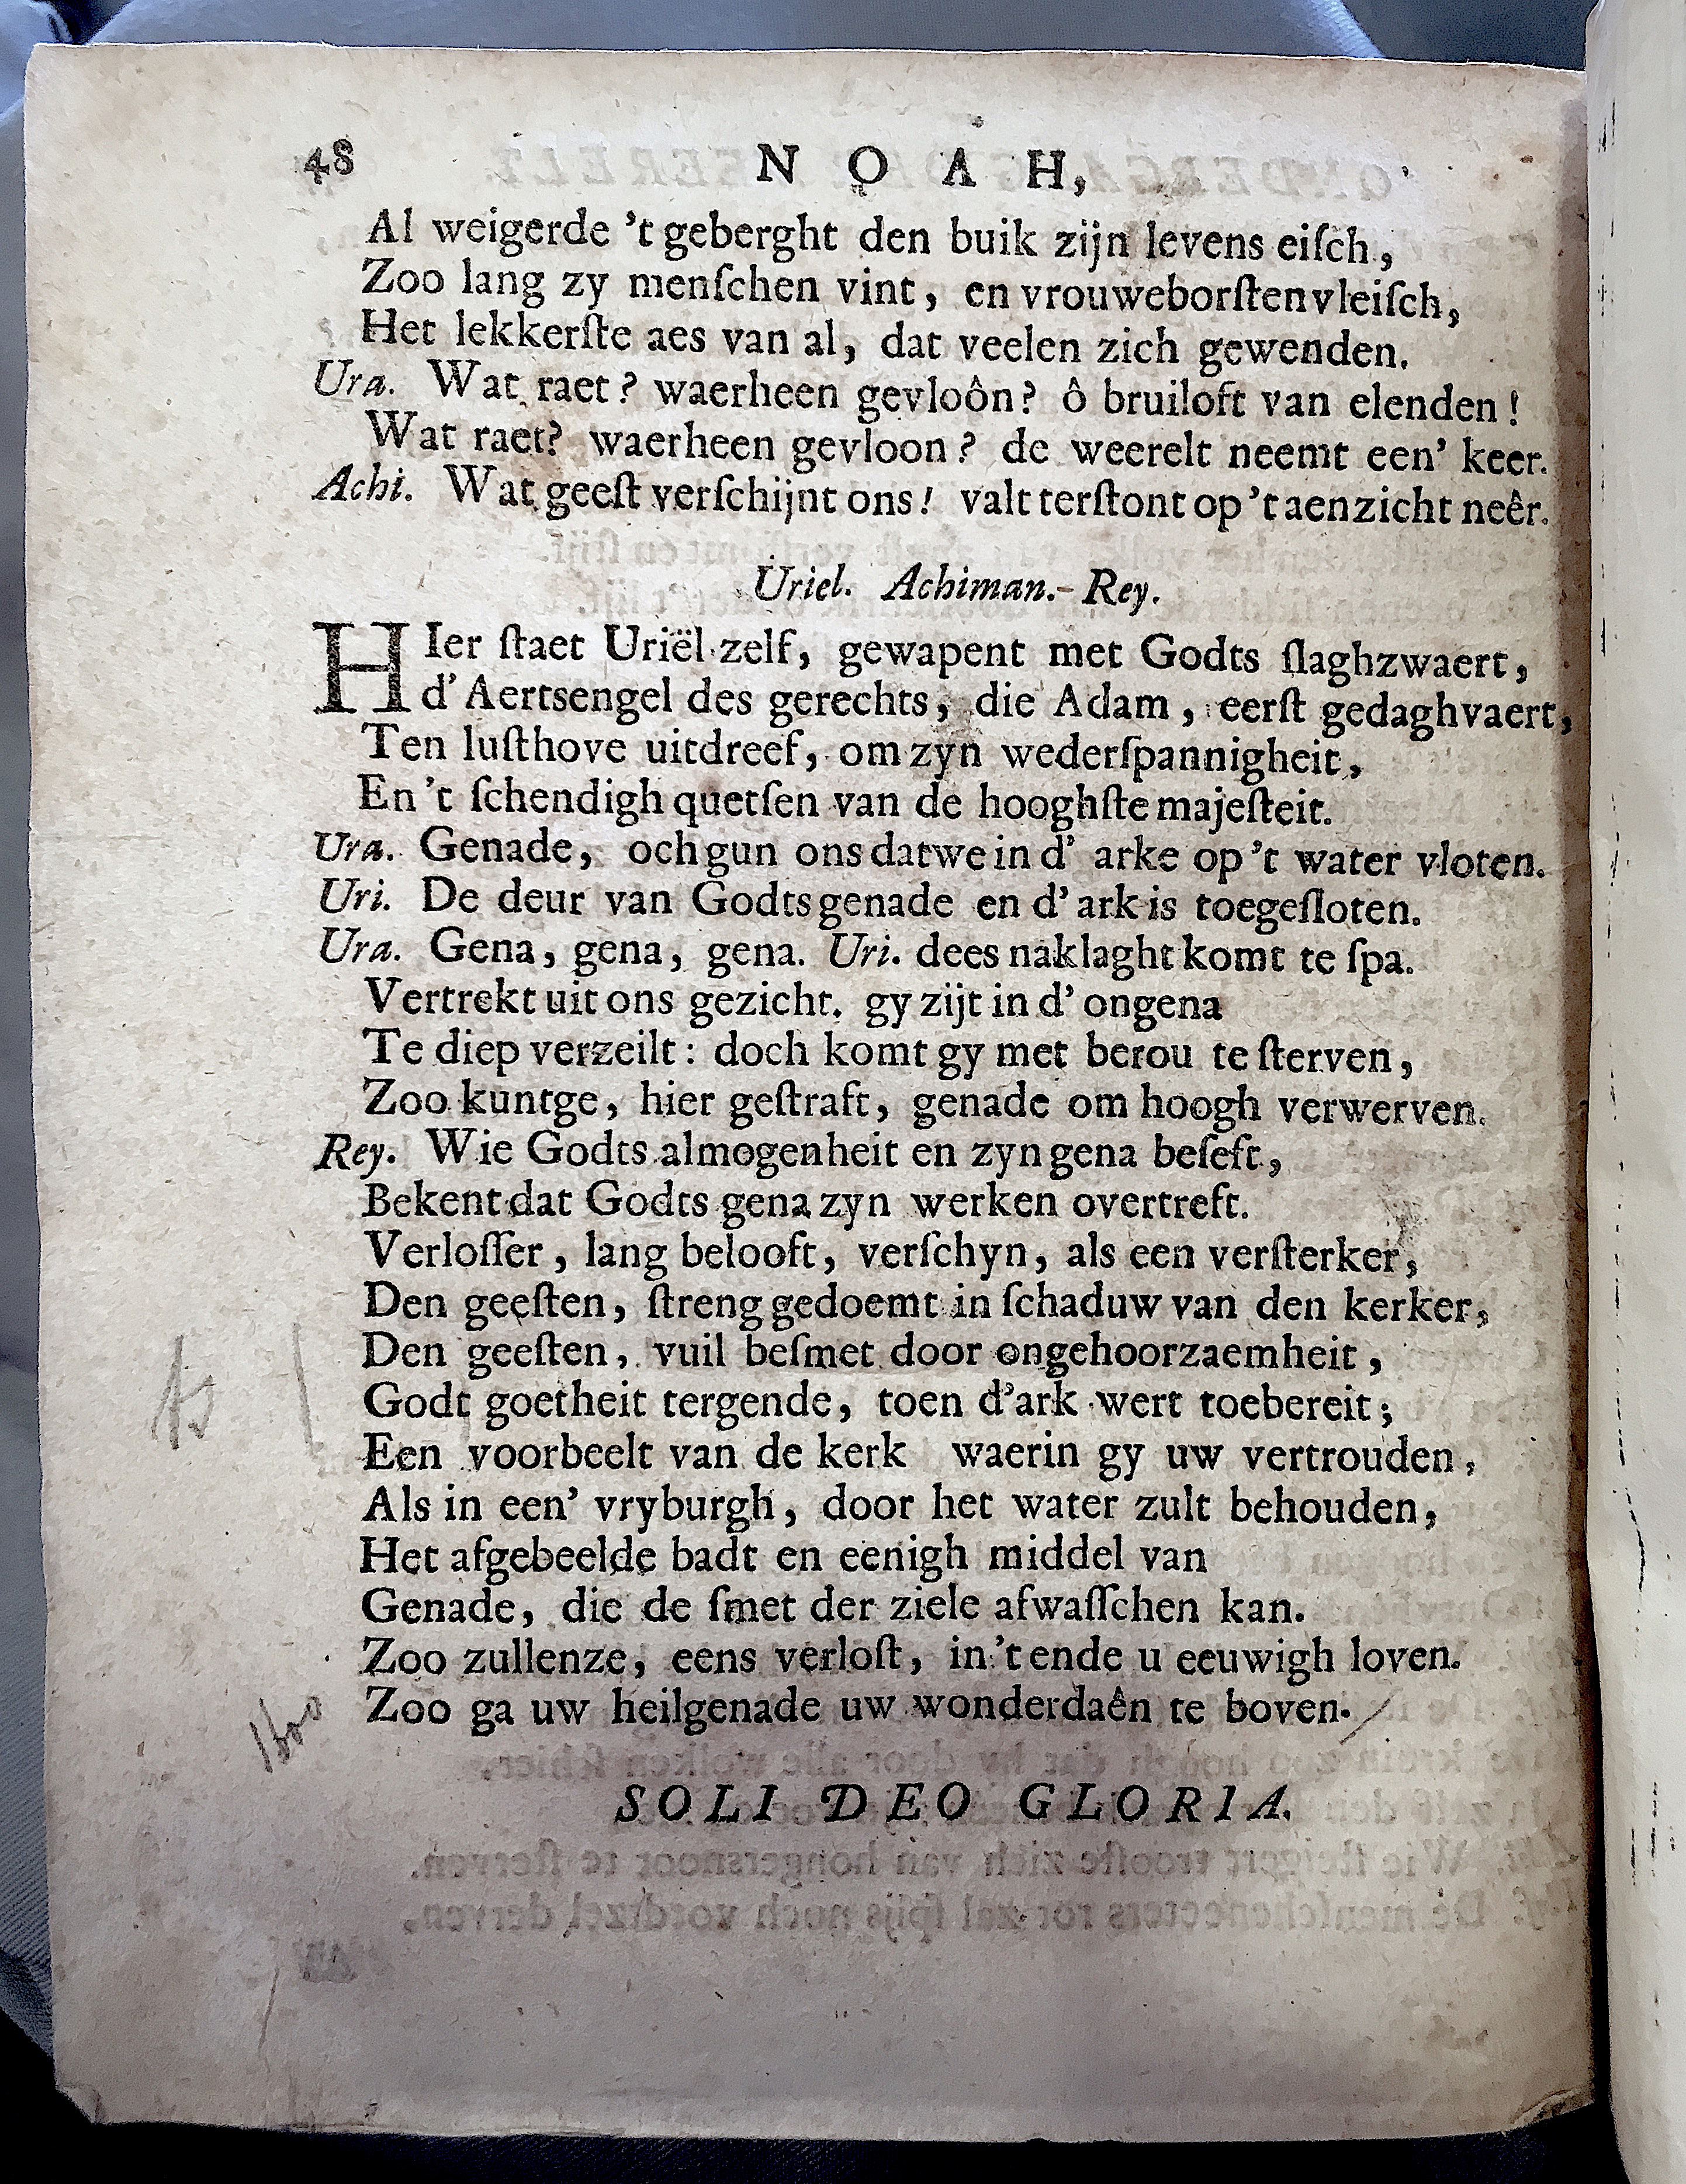 48 NOAH,
Al weigerde 't geberght den buik zijn levens eiſch,
Zoo lang zy menſchen vint, en vrouweborſtenvleiſch,
Het lekkerſte aes van al, dat veelen zich gewenden.
Ura. Wat raet? waerheen gevloôn? ô bruiloft van elenden!
Wat raet? waerheen gevloon? de weerelt neemt een' keer.
Achi. Wat geeſt verſchijnt ons! valt terſtont op 't aenzicht neêr.
Uriel. Achiman. Rey.
HIer ſtaet Uriël zelf, gewapent met Godts ſlaghzwaert,
d'Aertsengel des gerechts, die Adam, eerſt gedaghvaert,
Ten luſthove uitdreef, om zyn wederſpannigheit,
En 't ſchendigh quetſen van de hooghſte majeſteit.
Ura. Genade, och gun ons dat we in d' arke op 't water vloten.
Uri. De deur van Godts genade en d' ark is toegeſloten.
Ura. Gena, gena, gena. Uri. dees naklaght komt te ſpa.
Vertrekt uit ons gezicht. gy zijt in d' ongena
Te diep verzeilt: doch komt gy met berou te ſterven,
Zoo kuntge, hier geſtraft, genade om hoogh verwerven.
Rey. Wie Godts almogenheit en zyn gena beſeft,
Bekent dat Godts gena zyn werken overtreft.
Verloſſer, lang belooft, verſchyn, als een verſterker,
Den geeſten, ſtreng gedoemt in ſchaduw van den kerker,
Den geeſten, vuil beſmet door ongehoorzaemheit,
Godt goetheit tergende, toen d'ark wert toebereit;
Een voorbeelt van de kerk waerin gy uw vertrouden,
Als in een' vryburgh, door het water zult behouden,
Het afgebeelde badt en eenigh middel van
Genade, die de ſmet der ziele afwaſſchen kan.
Zoo zullenze, eens verloſt, in 't ende u eeuwigh loven.
Zoo ga uw heilgenade uw wonderdaên te boven.
SOLI DEO GLORIA.